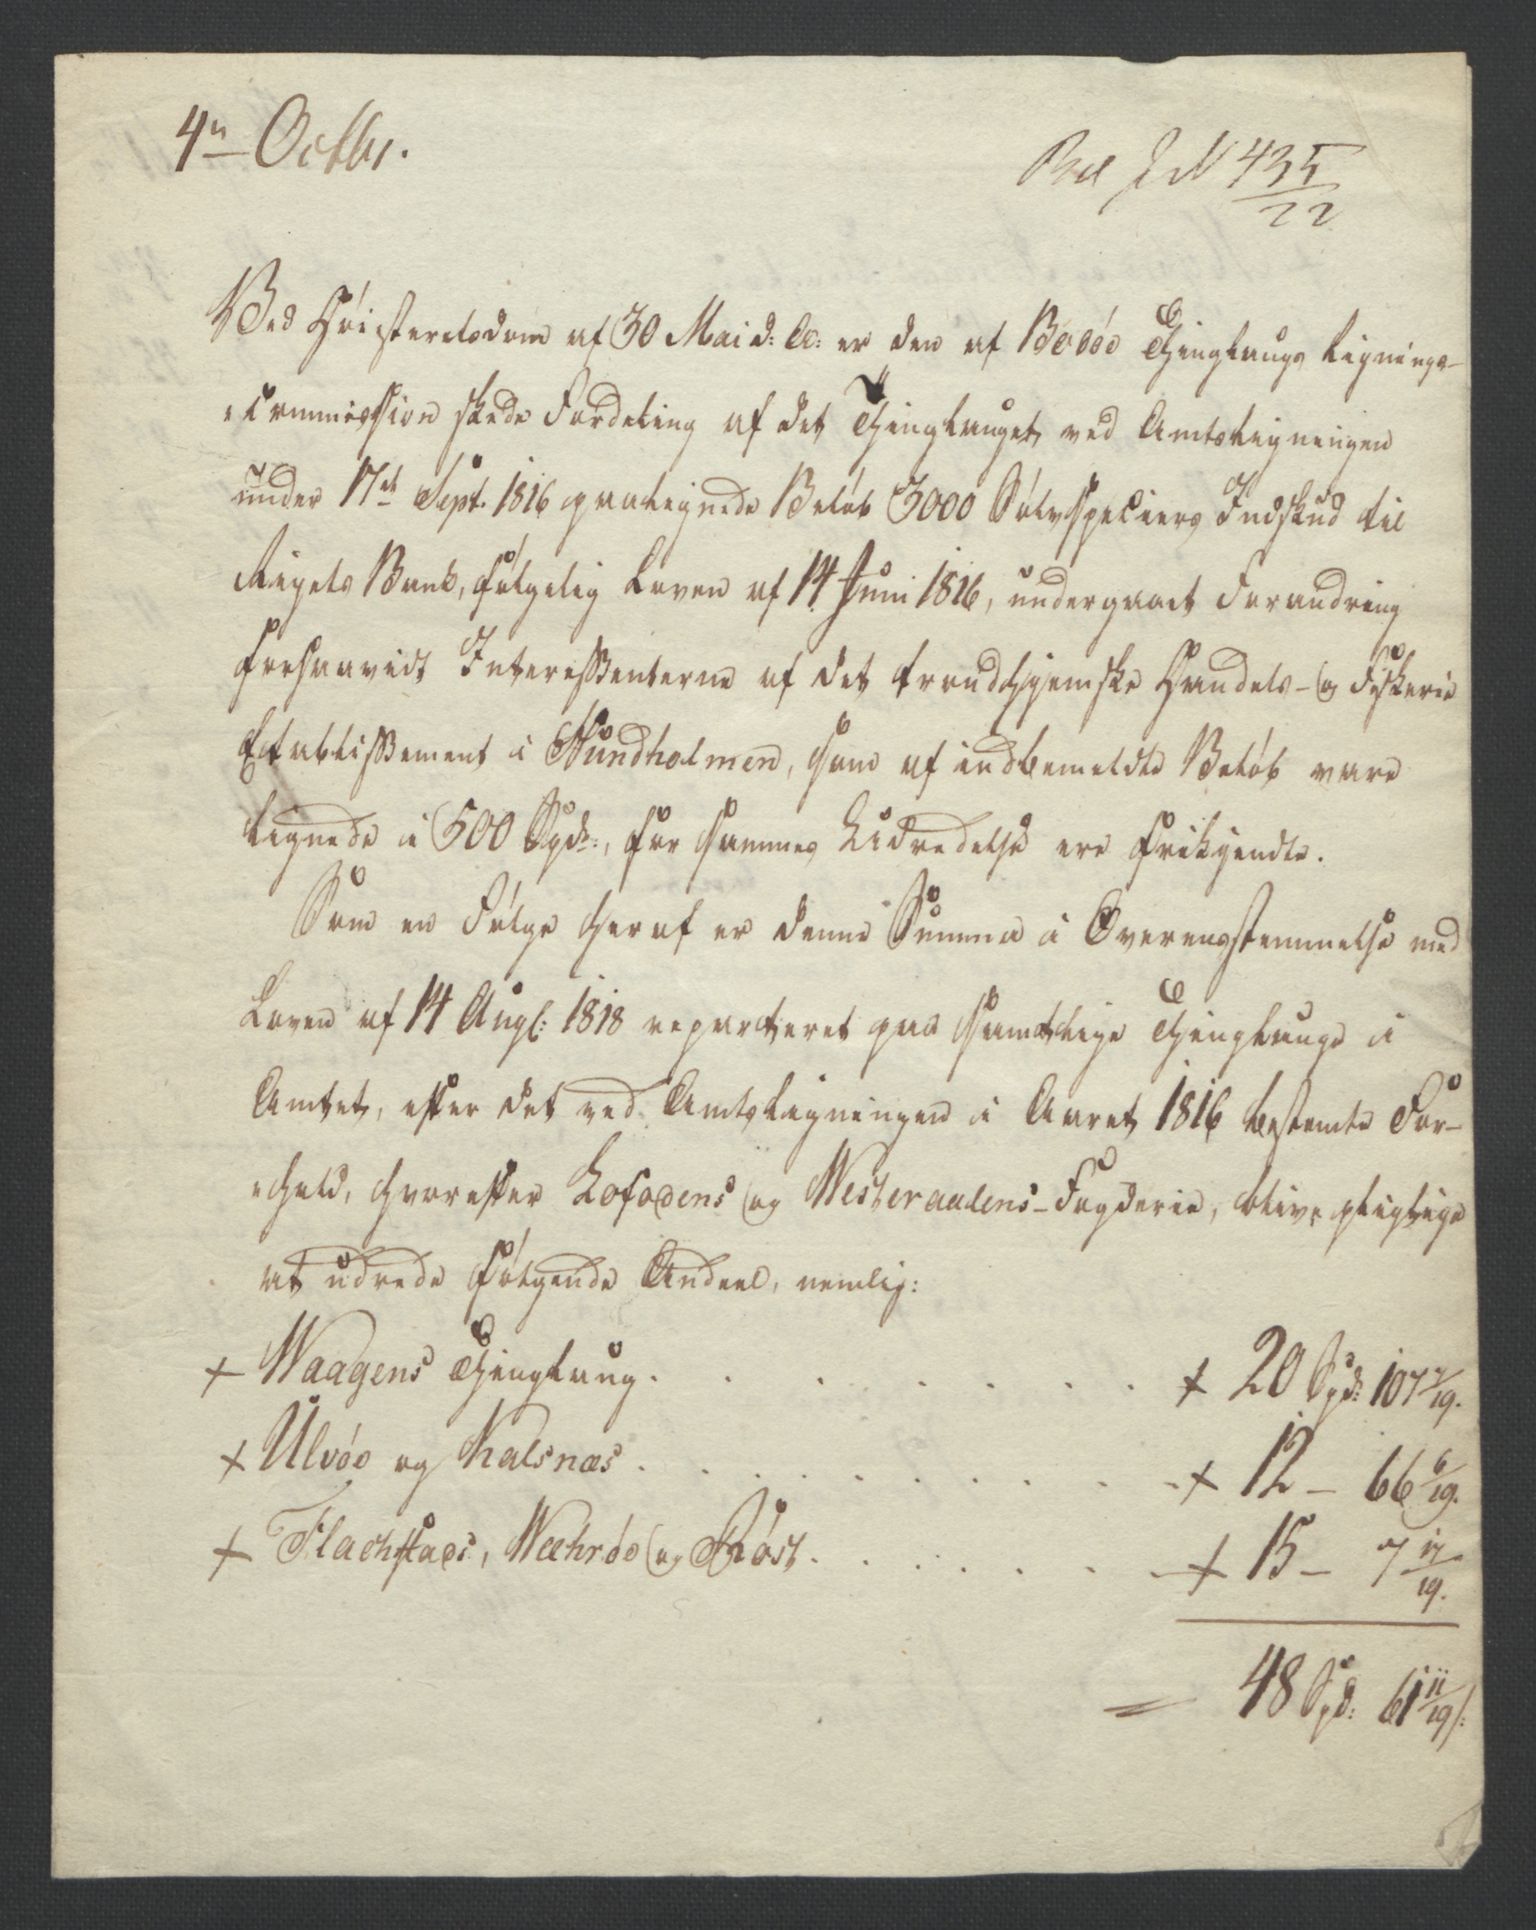 4n Octbr.
Bel J N 435/22
Ved Høiesteretsdom af 30 Mai d: A: er den af Bodøe Thinglaugs Lignings-
-commission skede Fordeling af det Thinglauget ved Amtsligningen
under 17de Sept. 1816 paalignede Beløb 3000 Sølvspecier Indskud til
Rigets Bank, følgelig Loven af 14 Juni 1816, undergaaet Forandring
forsaavidt Interessenterne af det trondhjemske Handels- og Fiskerie
Etablissement i Hundholmen, som af indbemeldte Beløb vare
lignede i 500 Spd:, for sammes Udredelse ere frikjendte.
Som en Følge heraf er denne Summa i Overensstemmelse med
Loven af 14 Aug: 1818 reparteret paa samtlige Thinglauge i
Amtet, efter det ved Amtsligningen i Aaret 1816 bestemte For-
-hold, hvorefter Lofodens og Westeraalens-Fogderie, blive pligtige
at udrede følgende Andeel, nemlig:
+ Waagens Thinglaug. . . . . . . . + 20 Spd: 107 7/19.
+ Ulvøe og Kalsnæs . . . . . . . . + 12 - 66 6/19.
+ Flachstads, Wæhrøe og Røst. . . . . . + 15 - 7 17/19.
= 48 Spd: 61 11/19 /: